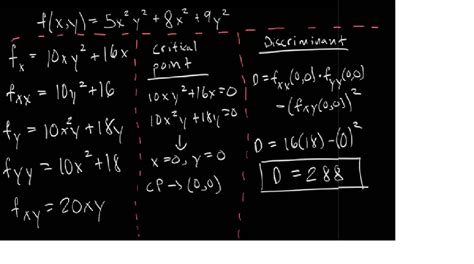 f(x,y) = 5x²y² + 8x² + 9y²
f_x = 10xy² + 16x
f_xx = 10y² + 16
f_y = 10x²y + 18y
f_yy = 10x² + 18
f_xy = 20xy
critical
point
10xy² + 16x = 0
10x²y + 18y = 0
↓
x = 0, y = 0
CP → (0,0)
Discriminant
D = f_xx(0,0) · f_yy(0,0)
− (f_xy(0,0))²
D = 16(18) − (0)²
D = 288